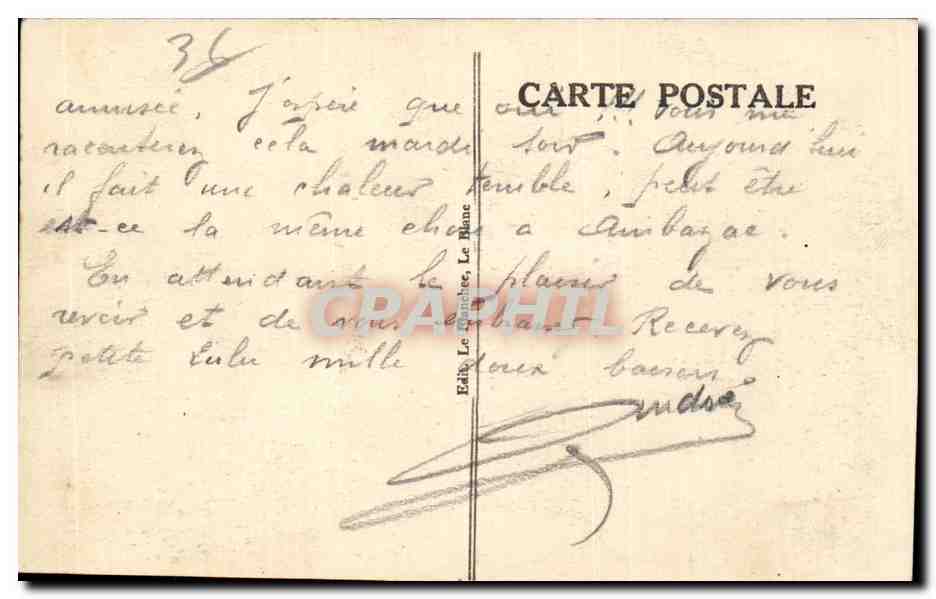 36
CARTE POSTALE
amusée, J'espère que oui !!! Vous me
raconterez cela mardi soir. Aujourd'hui
il fait une chaleur terrible, peut être
est-ce la même chose a Ambazac.
En attendant le plaisir de vous
revoir et de vous embrasser. Recevez
petite Lulu mille doux baisers
André
Edit. Le Blanchee, Le Blanc
CPARPHIL